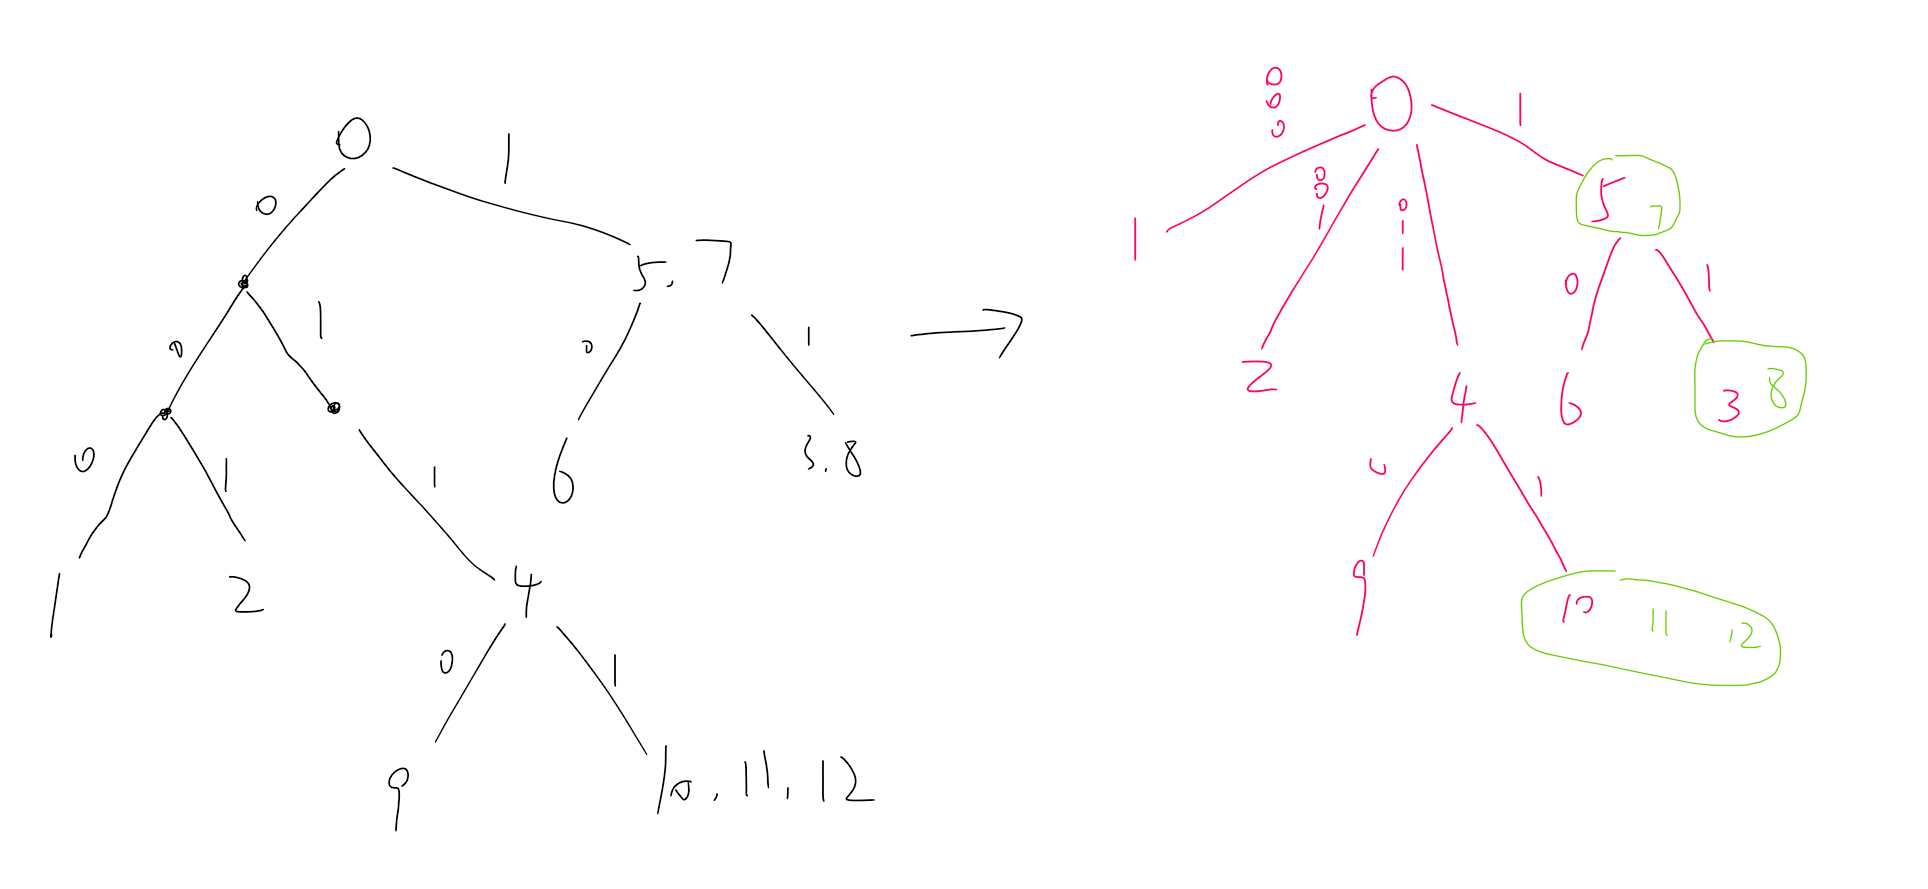 0
0 1
5, 7
0 1
0 1
3.8
6
0 1 1
1 2 4
0 1
9 10, 11, 12
0 0 0 0 1
1 0 0 1 0 1 1 5 7
0 1
2 4 6 3 8
0 1
9 10 11 12